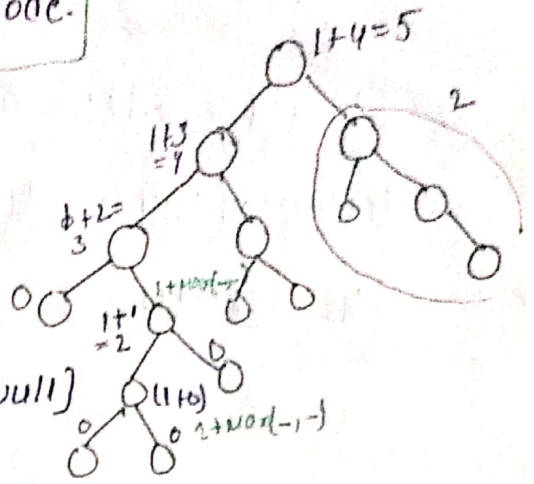 1+4=5
2
1+3
=4
1+2=
3
0
1+max(-,
1+1
=2
0
null]
(1+0)
0
0
1+max(-,-)